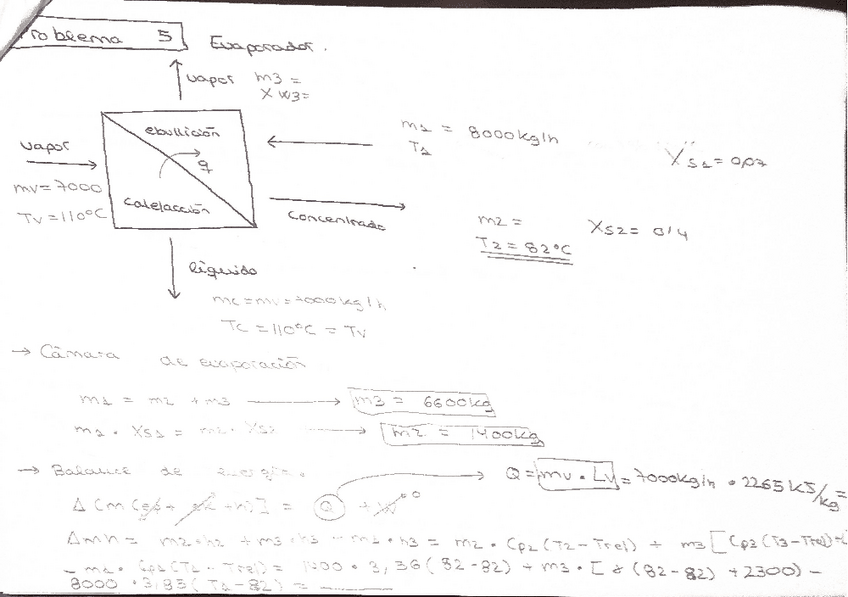 Problema 5
Evaporador.
vapor m3 =
XW3=
ebullición
q
calefacción
vapor
mv=7000
Tv=110°C
m1 = 8000kg/h
T1
Xs1=0,07
Concentrado
m2 =
T2=82°C
Xs2= 0,4
líquido
mc=mv=7000kg/h
Tc=110°C=Tv
→ Cámara de evaporación
m1 = m2 + m3 → m3 = 6600kg
m1 · Xs1 = m2 · Xs2 → m2 = 1400kg
→ Balance de energía.
Q= mv·Lv = 7000kg/h · 2265 kJ/kg =
= Q + W 0
Δmh = m2·h2 + m3·h3 - m1·h3 = m2·Cp2(T2-Tref) + m3[Cp3(T3-Tref)+
= 1400·3,36(82-82) + m3·[ (82-82)+2300) -
8000·3,85(T1-82) =